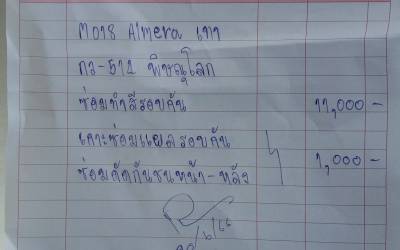 M018 Almera เทา
กว-512 พิษณุโลก
ซ่อมทำสีรอบคัน 11,000-
เคาะซ่อมแผลรอบคัน
ซ่อมคัดกันชนหน้า-หลัง 1,000-